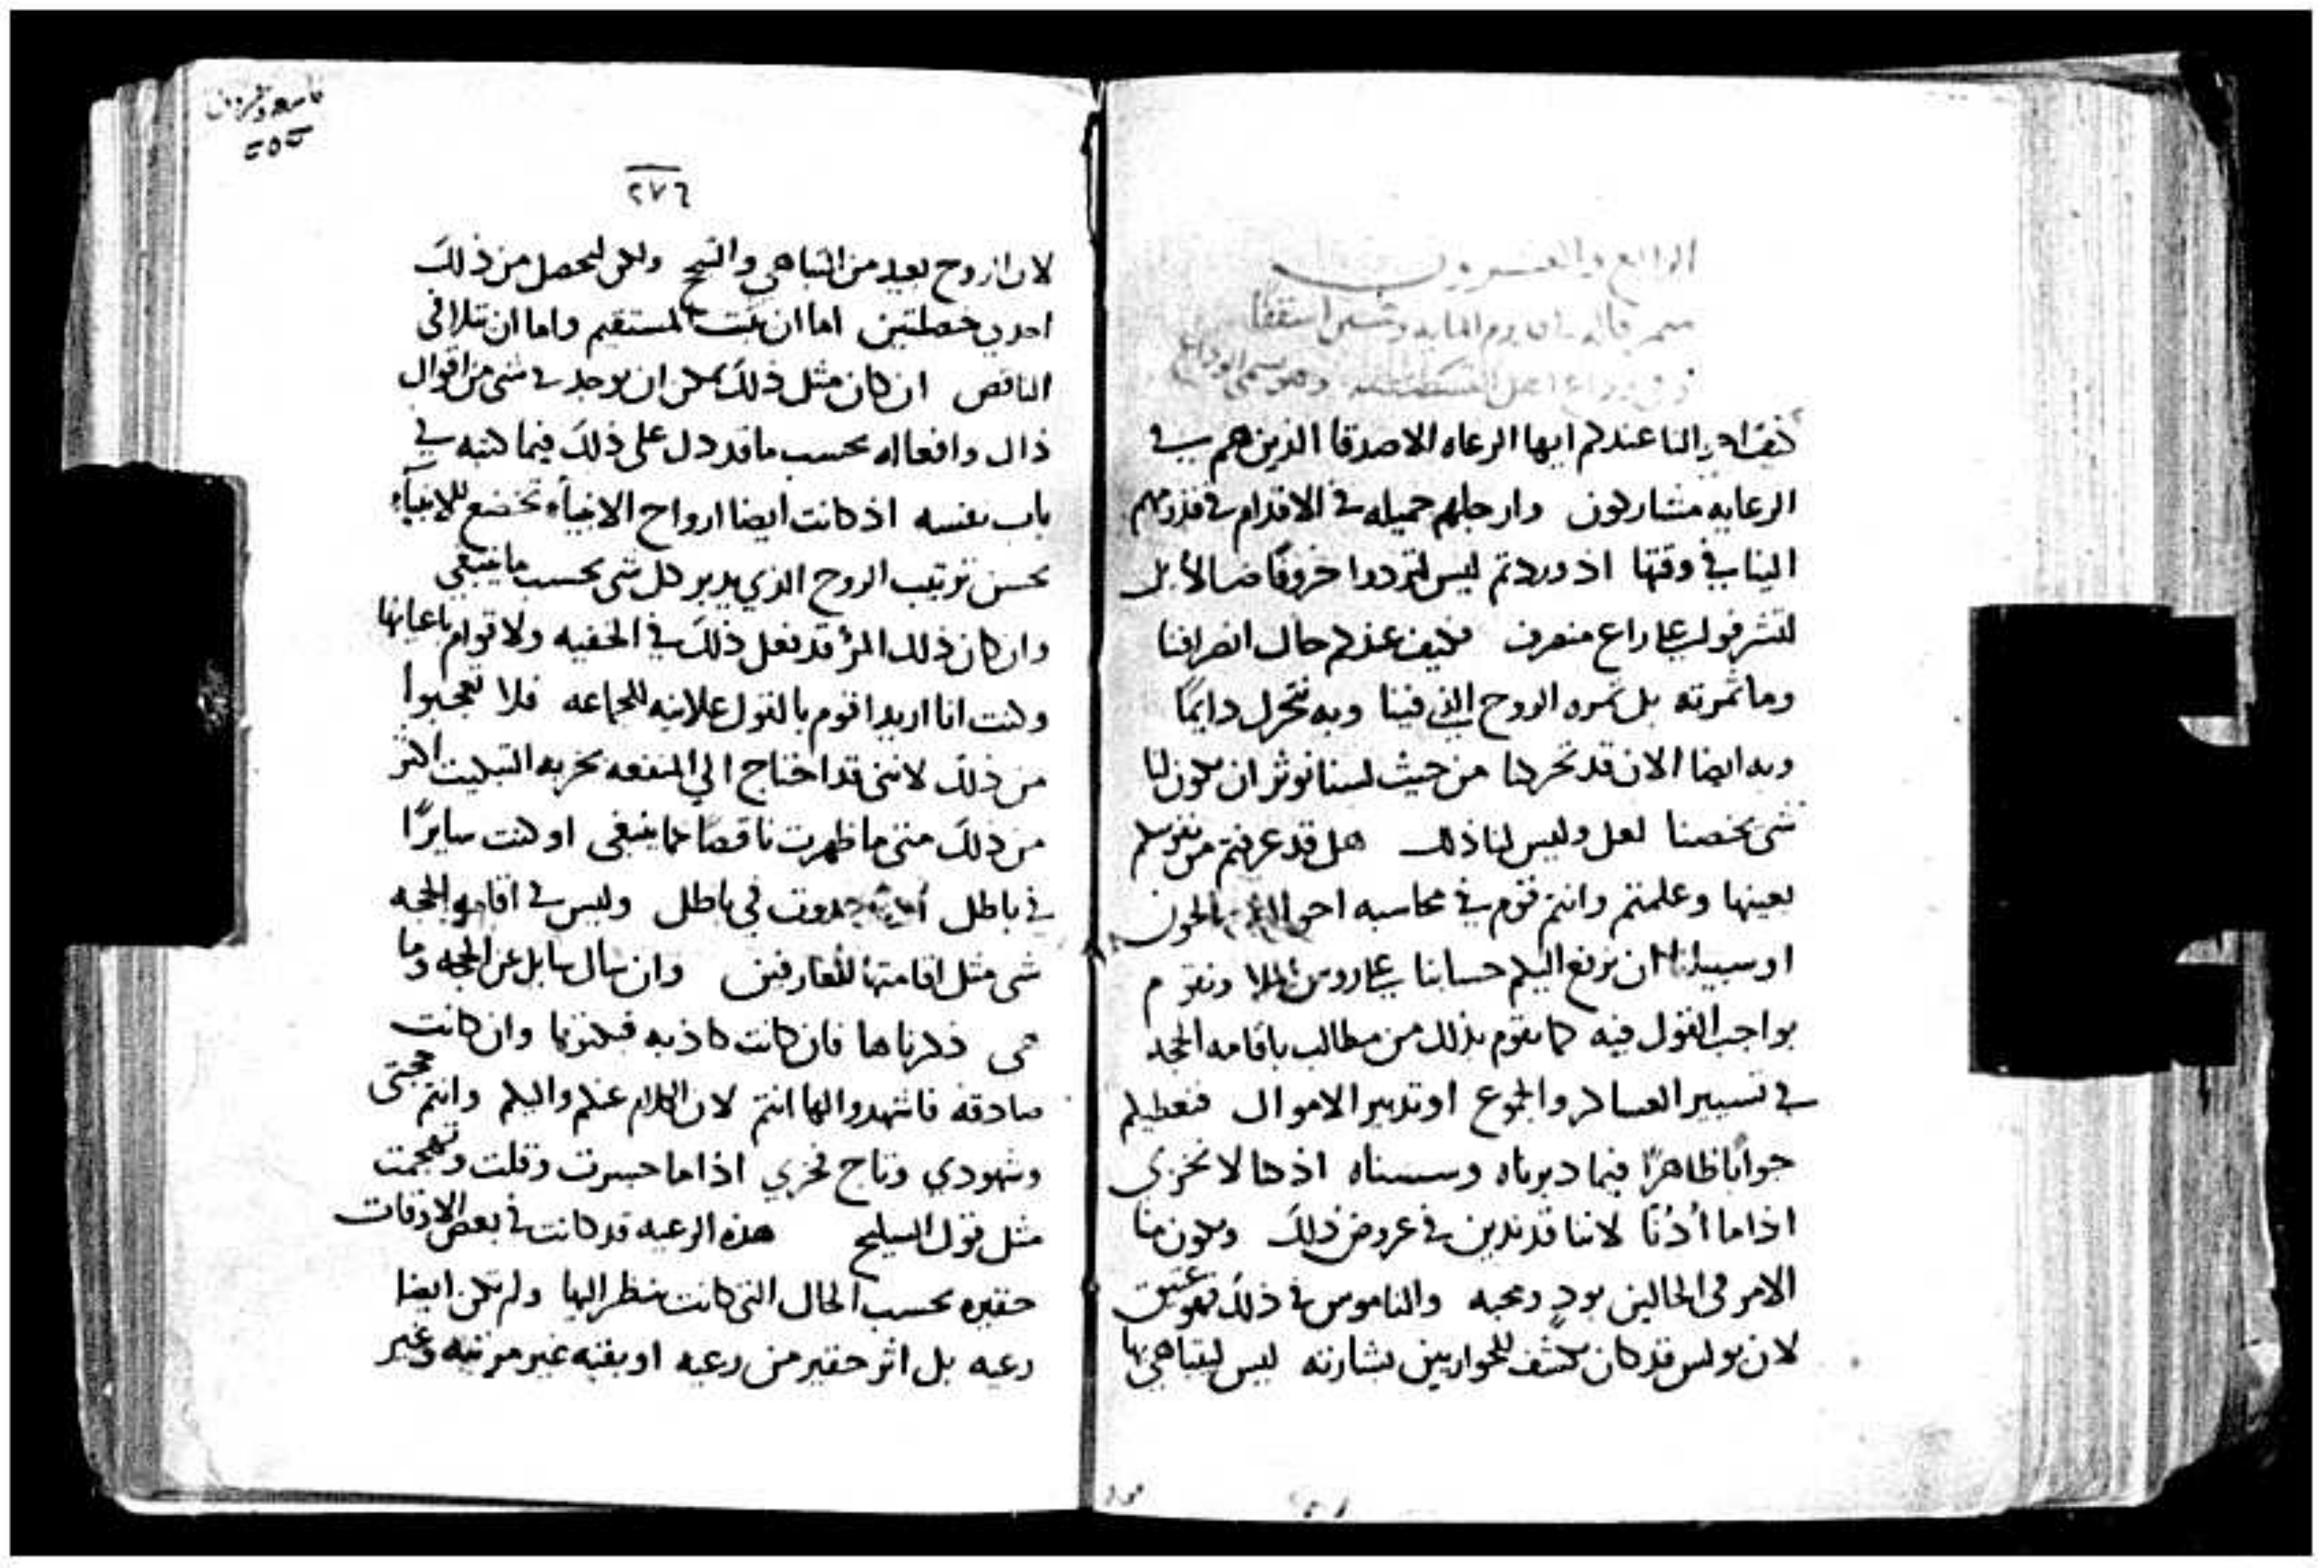 الرابع والعشرون
الما به وخمسين اسقفا
وهو يسمى الوداع
كيف امورنا عندكم ايها الرعاه الاصدقا الذين هم في
الرعايه مشاركون وارجلهم جميله في الاقدام في قدومهم
الينا في وقتها اذ وردتم ليس لتردوا خروفًا ضالا بل
لتشرفوا على راع منصرف فكيف عندكم حال انصرافنا
وما ثمرته بل ثمره الروح الذي فينا وبه نتحرك دايمًا
وبه ايضا الان قد تحركنا من حيث لسنا نوثر ان يكون لنا
شي يخصنا لعل وليس لنا ذلك هل قد عرفتم من نفوسكم
بعينها وعلمتم وانتم قوم في محاسبه احوالنا
او سبيلنا ان نرفع اليكم حسابنا على روس الملا ونقوم
بواجب القول فيه كما يقوم بذلك من يطالب باقامه الحجه
في تسيير العساكر والجموع او تدبير الاموال فنعطيكم
جوابًا ظاهرًا فيما دبرناه وسسناه اذ كنا لا نخزي
اذا ما اُدُنّا لاننا قد ندين في عروض ذلك ويكون منا
الامر في الحالين بود ومحبه والناموس في ذلك فهو عتيق
لان بولس قد كان يكشف للحواريين بشارته ليس ليتباهي بها
٢٧٦
لان الروح بعيد من التباهي والتبجح ولكن ليحصل من ذلك
احدي خصلتين اما ان يثبت المستقيم واما ان يتلافى
الناقص ان كان مثل ذلك يمكن ان يوجد في شي من اقوال
ذاك وافعاله بحسب ما قد دل على ذلك فيما كتبه في
باب نفسه اذ كانت ايضا ارواح الانبياء تخضع للانبيآء
بحسن ترتيب الروح الذي يدبر كل شي بحسب ما ينبغي
وان كان ذلك المرؤ قد فعل ذلك في الخفيه ولاقوام باعيانها
وكنت انا اريد اقوم بالقول علانيه للجماعه فلا تعجبوا
من ذلك لانني قد احتاج الي المنفعه بحريه التبكيت اكثر
من ذلك متى ما ظهرت ناقصًا عما ينبغي او كنت سايرًا
في باطل في باطل وليس في اقامه الحجه
شي مثل اقامتها للعارفين وان سال سايل عن الحجه وما
هي ذكرناها فان كانت كاذبه فبكتونا وان كانت
صادقه فاشهدوا لها انتم لان الكلام عنكم واليكم وانتم حجتي
وشهودي وتاج فخري اذا ما جسرت وقلت وتهجمت
مثل قول السليح هذه الرعيه قد كانت في بعض الاوقات
حقيره بحسب الحال التي كانت ينظر اليها ولم تكن ايضا
رعيه بل اثر حقير من رعيه او بقيه غير مرتبه وغير